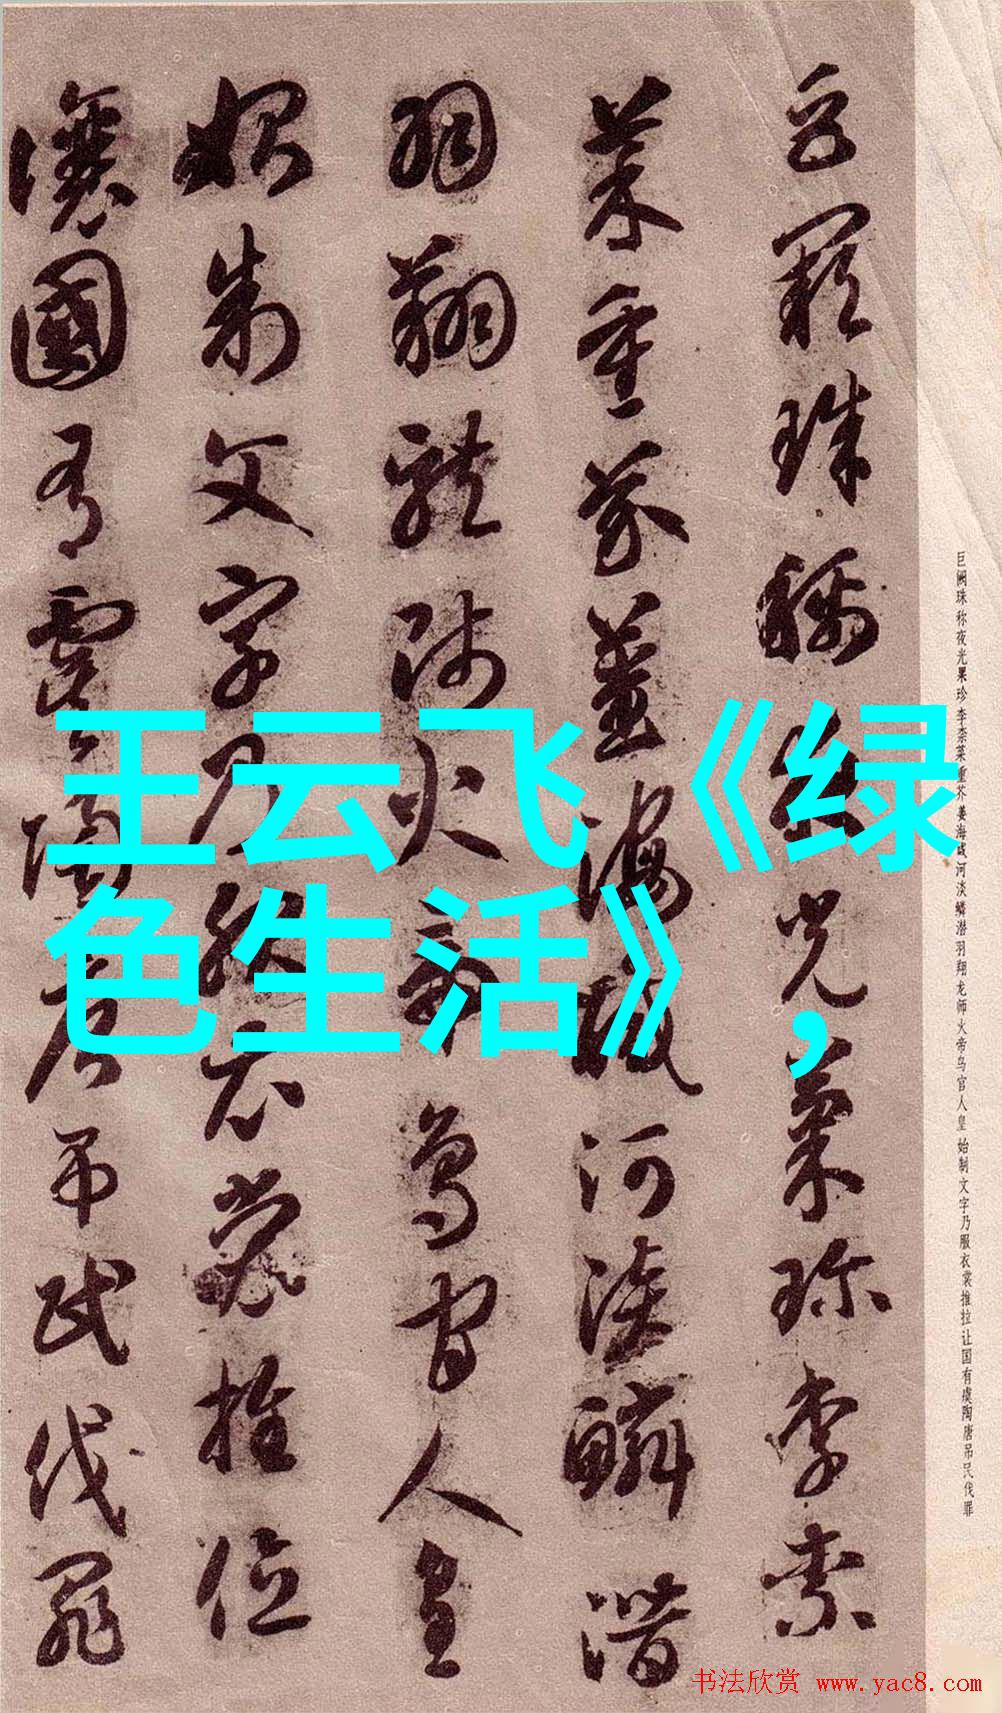 巨闕珠稱夜光菓珍李柰
菜重芥薑海鹹河淡鱗潛
羽翔龍師火帝鳥官人皇
始制文字乃服衣裳推位
讓國有虞陶唐吊民伐罪
巨阙珠称夜光果珍李柰菜重芥姜海咸河淡鳞潜羽翔龙师火帝鸟官人皇始制文字乃服衣裳推拉让国有虞陶唐吊民伐罪
王云飞《绿
色生活》，
书法欣赏 www.yac8.com